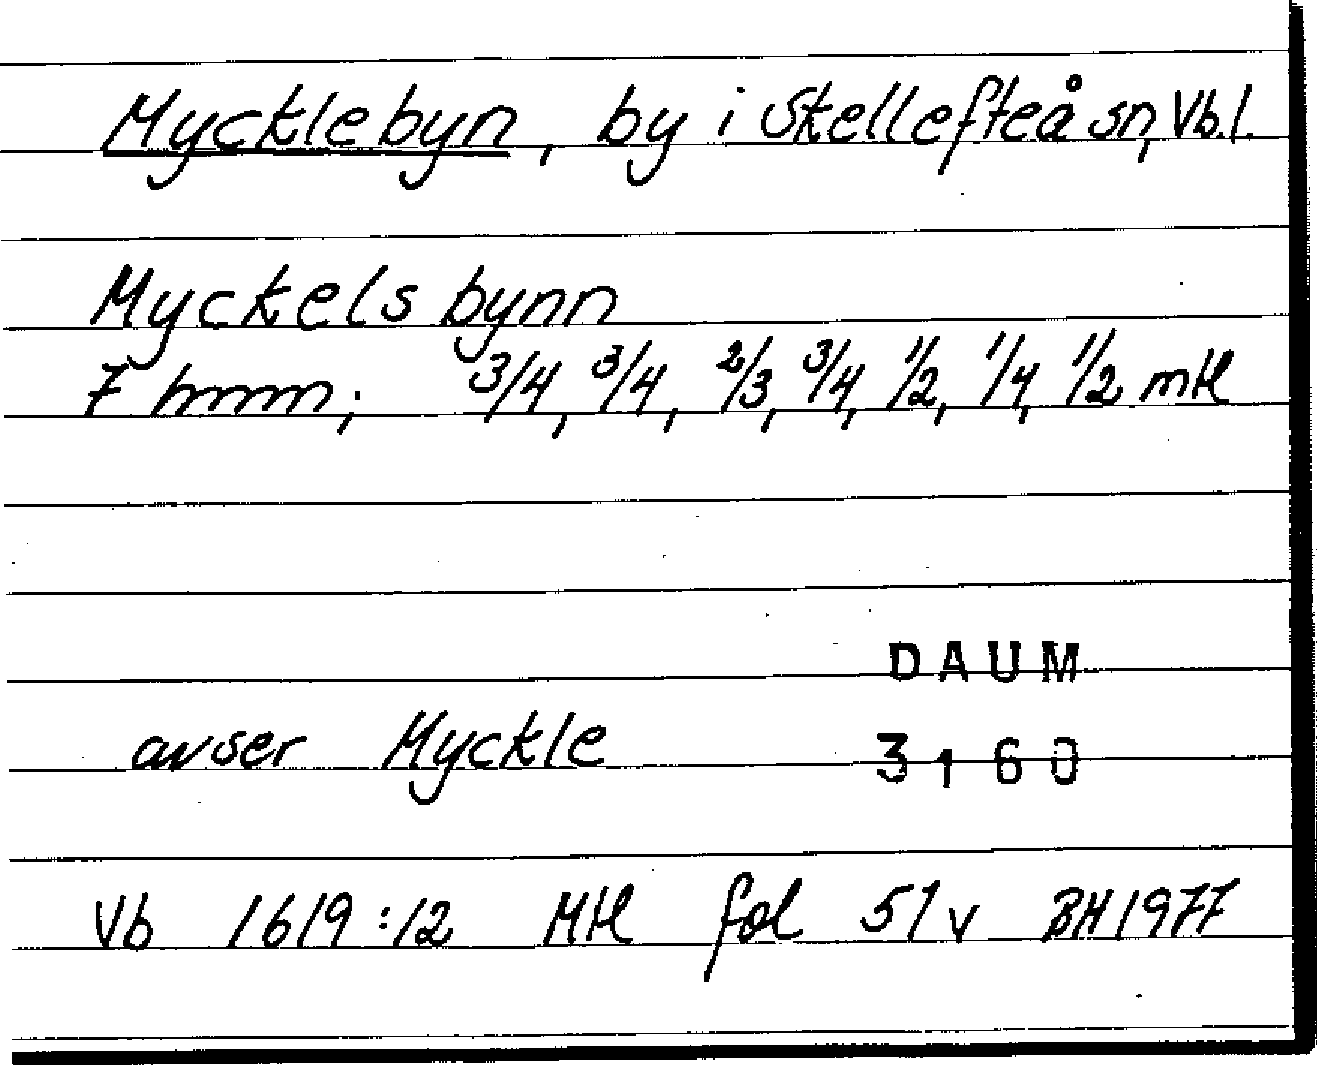 Mycklebyn, by i Skellefteå sn, Vb.l.
Myckels bynn
7 hmn; 3/4, 3/4, 2/3, 3/4, 1/2, 1/4, 1/2 mtl
DAUM
avser Myckle
3160
Vb 1619:12 Mtl fol 51v BH 1977